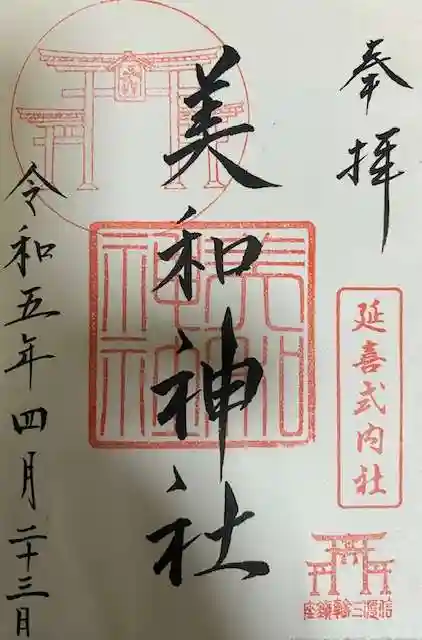 奉拝
延喜式内社
美和神社
令和五年四月二十三日